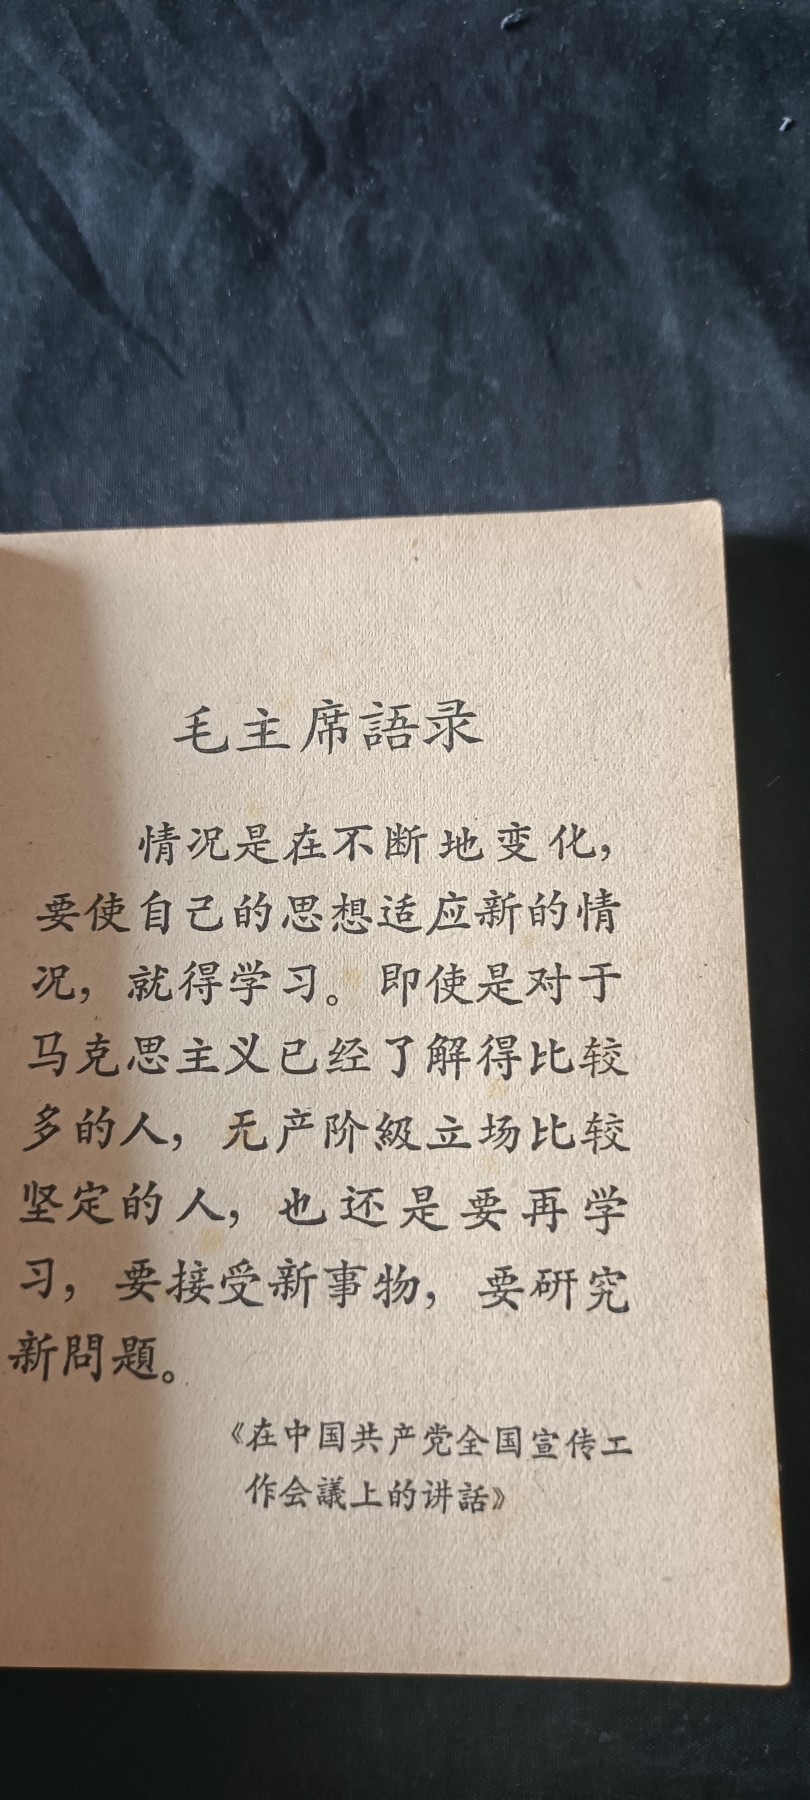 毛主席語录
情况是在不断地变化，
要使自己的思想适应新的情
况，就得学习。即使是对于
马克思主义已经了解得比较
多的人，无产阶級立场比较
坚定的人，也还是要再学
习，要接受新事物，要研究
新問題。
《在中国共产党全国宣传工
作会議上的讲話》